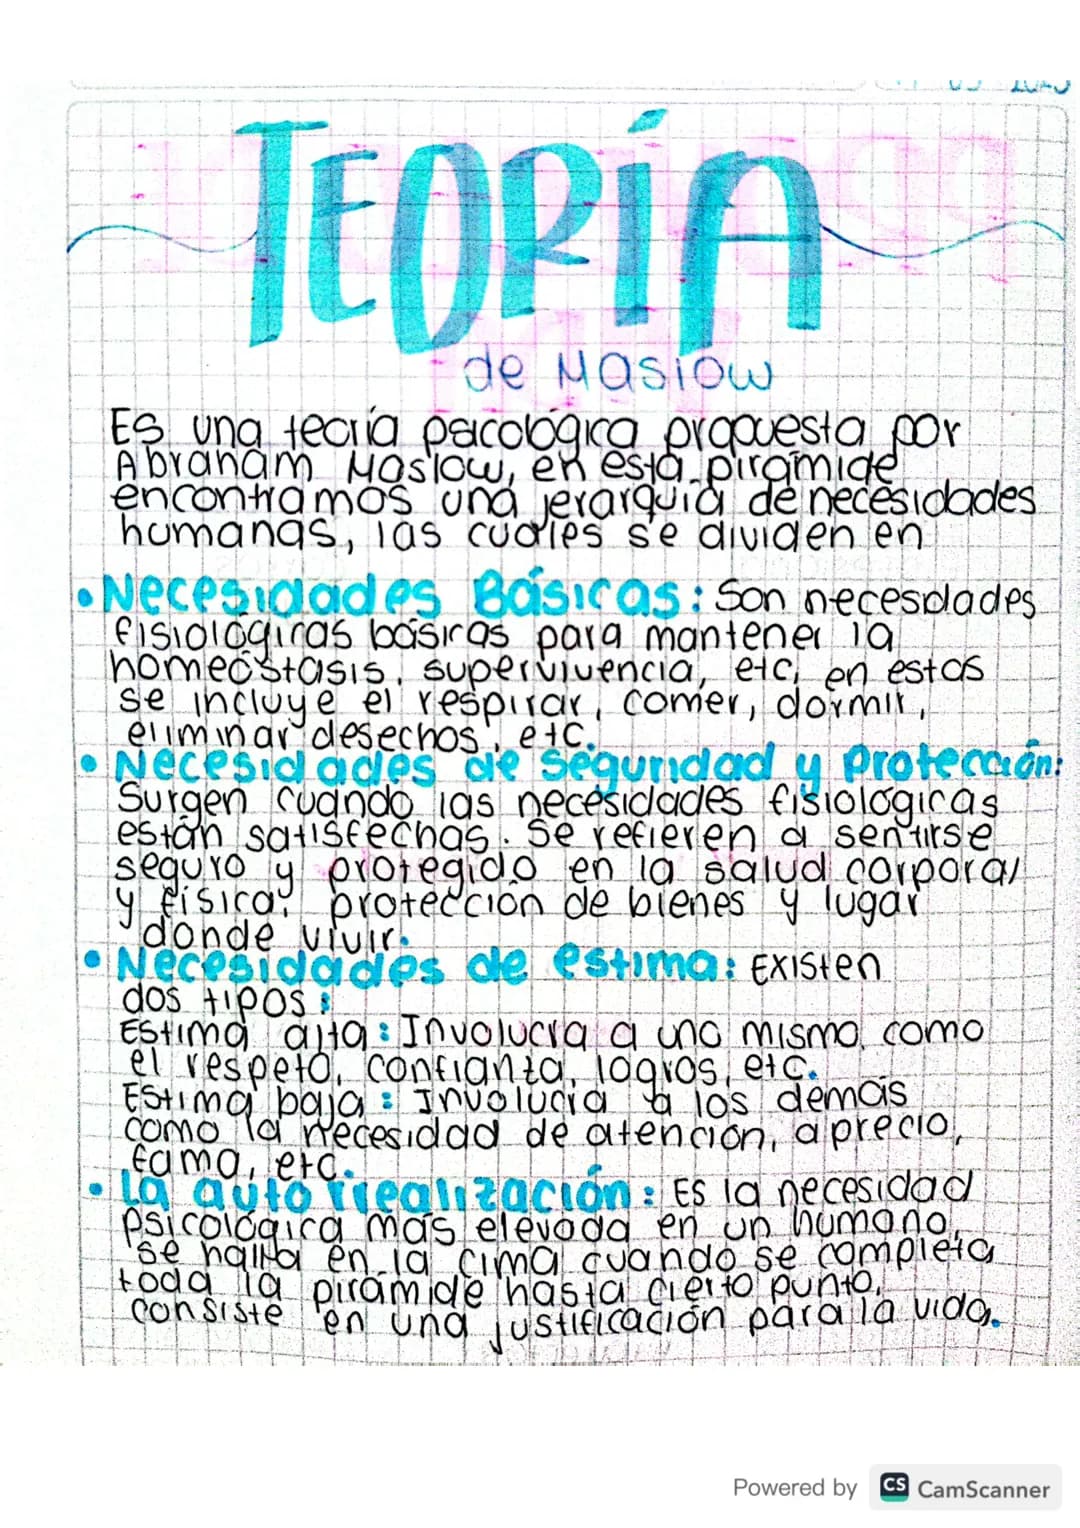 TEORÍA
de Maslow
Es una teoría psicológica propuesta por
Abraham Maslow, en esta pirámide
encontramos una jerarquía de necesidades
humanas, las cuales se dividen en
• Necesidades Básicas: Son necesidades
fisiológicas básicas para mantener la
homeostasis, supervivencia, etc, en estas
se incluye el respirar, comer, dormir,
eliminar desechos, etc.
• Necesidades de seguridad y protección:
Surgen cuando las necesidades fisiológicas
están satisfechas. Se refieren a sentirse
seguro y protegido en la salud corporal
y física, protección de bienes y lugar
donde vivir.
• Necesidades de estima: Existen
dos tipos:
Estima alta: Involucra a uno mismo, como
el respeto, confianza, logros, etc.
Estima baja: Involucra a los demás
como la necesidad de atención, aprecio,
fama, etc.
• La auto realización: Es la necesidad
psicológica más elevada en un humano,
se halla en la cima cuando se completa
toda la pirámide hasta cierto punto,
consiste en una justificación para la vida.
Powered by CS CamScanner